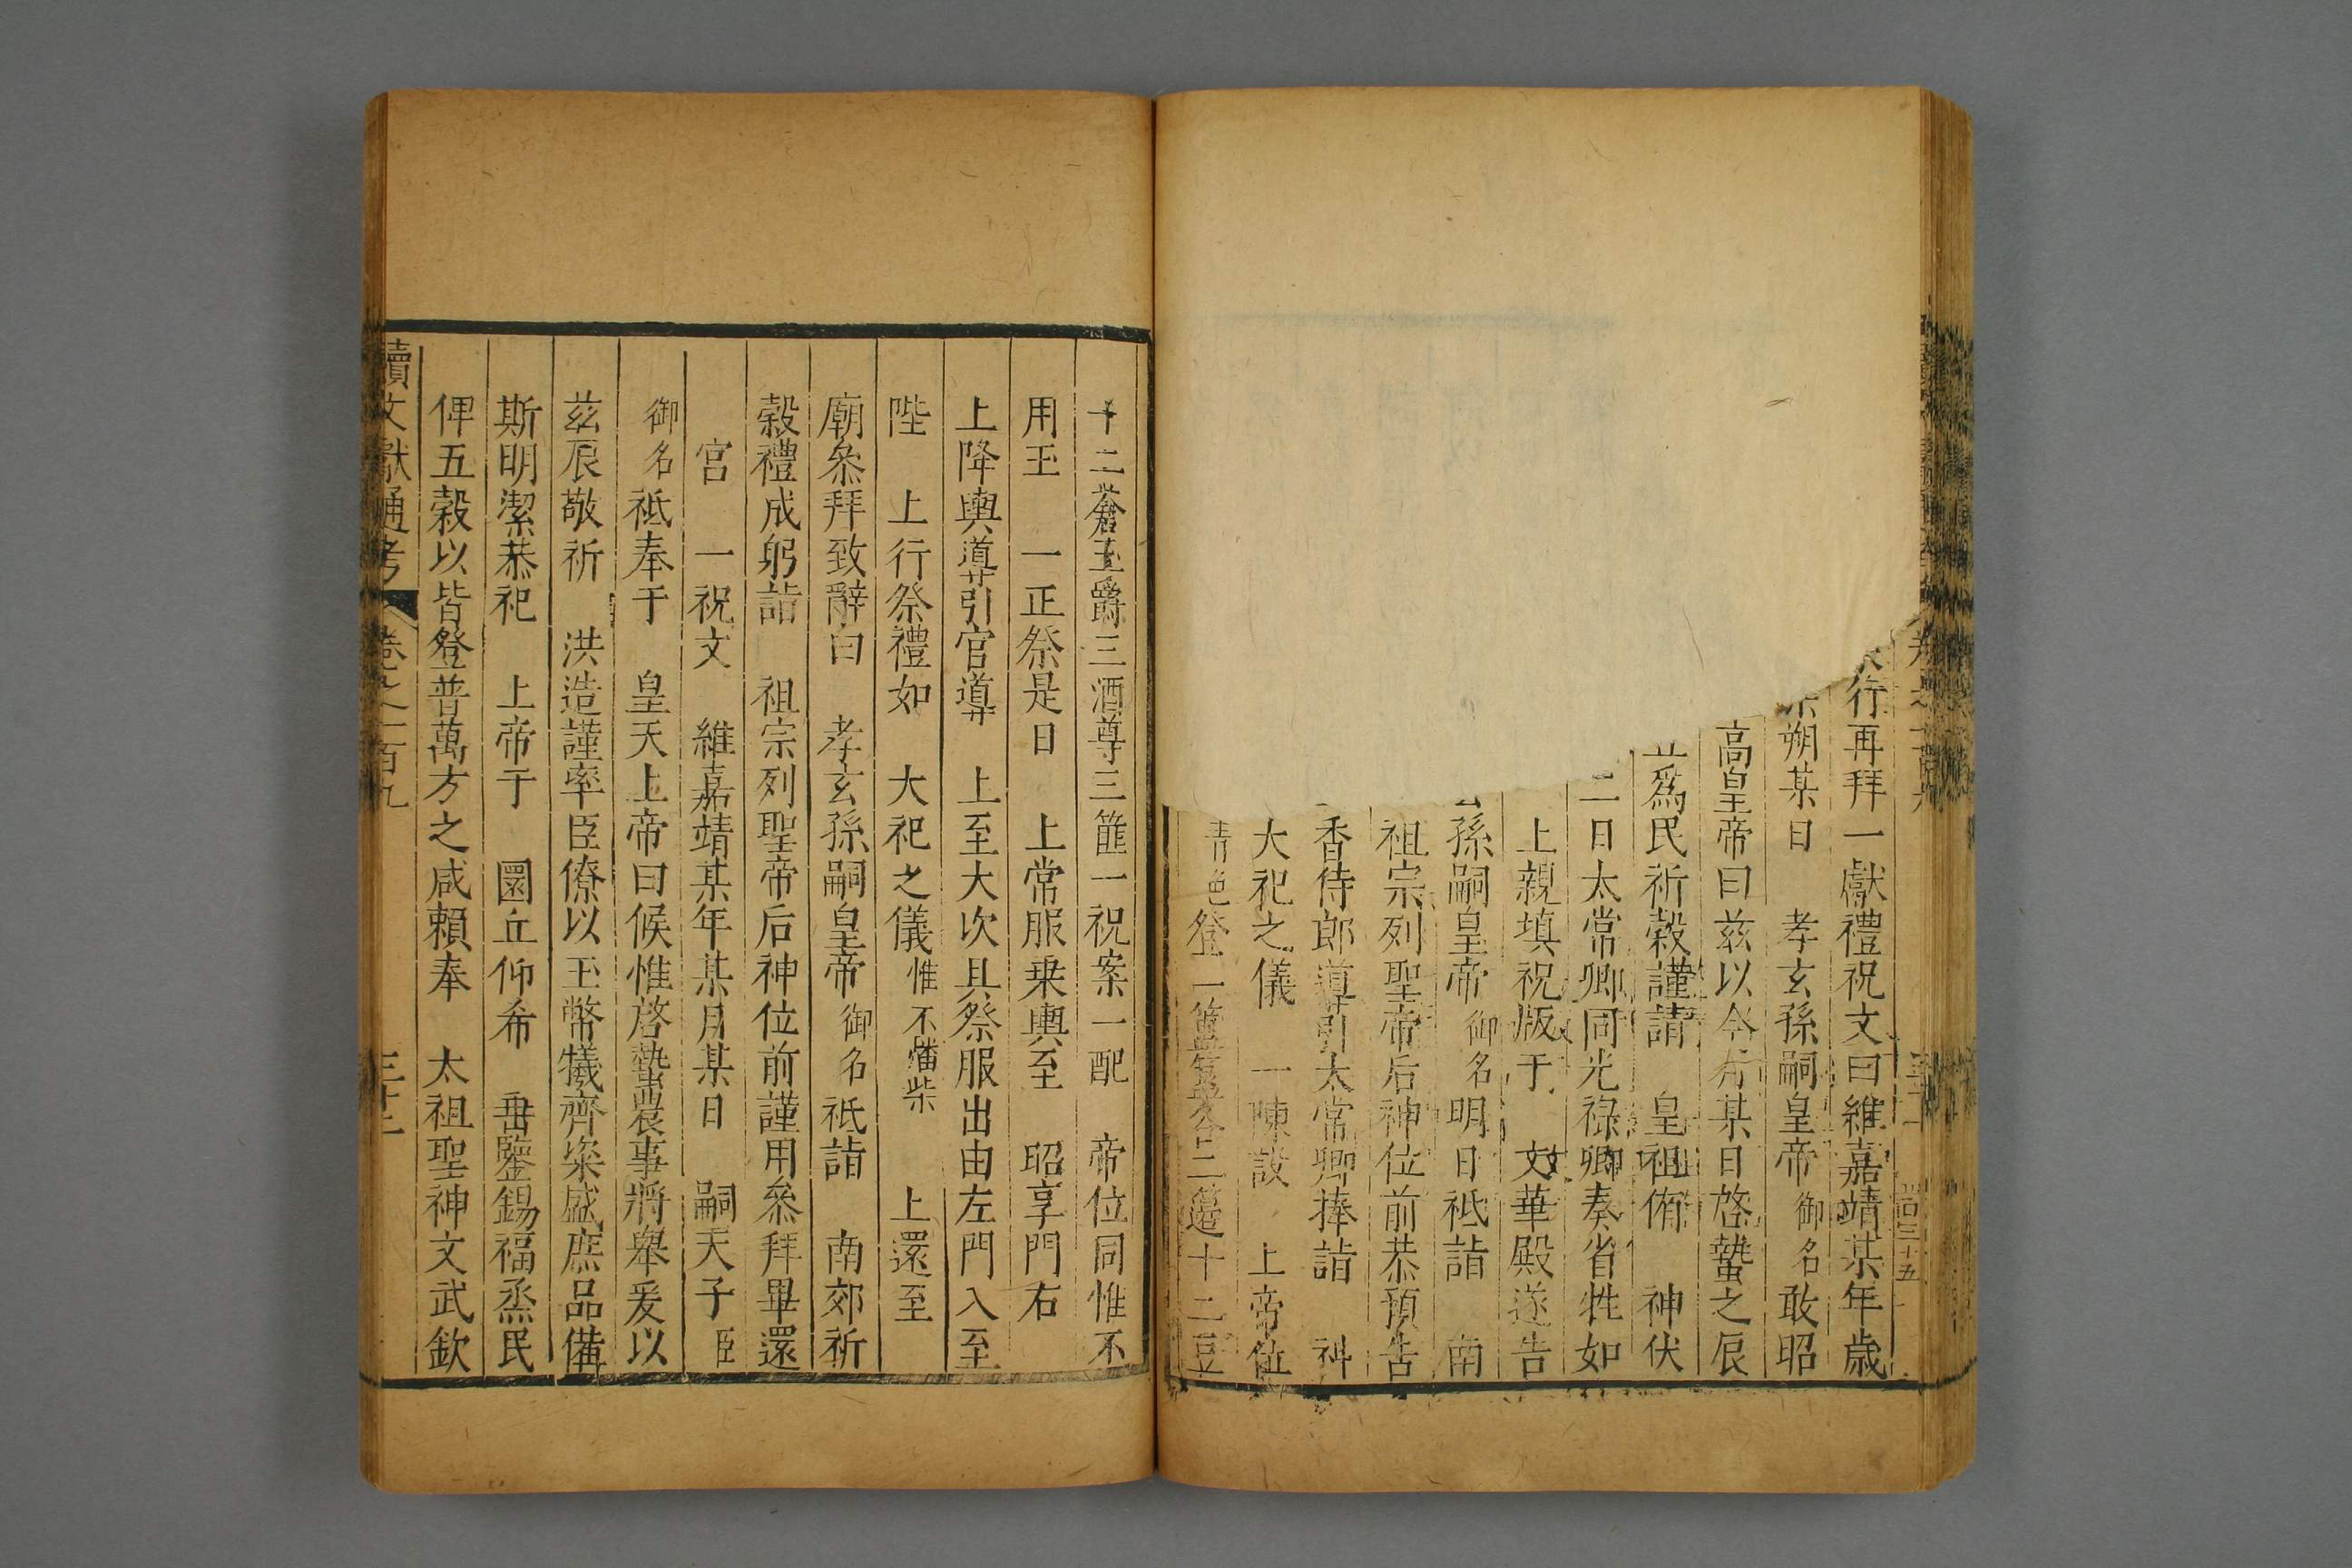 行再拜一獻禮祝文曰維嘉靖某年歲
朔某日　孝玄孫嗣皇帝御名敢昭
高皇帝曰兹以今月某日啓蟄之辰
爲民祈穀謹請　皇祖侑　神伏
二日太常卿同光祿卿奏省牲如
上親填祝版于　文華殿遂告
孫嗣皇帝御名明日祇詣　南
祖宗列聖帝后神位前恭預告
香侍郎導引太常卿捧詣　神
大祀之儀　一陳設　上帝位
登一簠簋各二籩十二豆
十二蒼玉爵三酒尊三篚一祝案一配　帝位同惟不
用玉　一正祭是日　上常服乗輿至　昭享門右
上降輿導引官導　上至大次具祭服出由左門入至
陛　上行祭禮如　大祀之儀惟不燔柴　上還至
廟叅拜致辭曰　孝玄孫嗣皇帝御名祇詣　南郊祈
穀禮成躬詣　祖宗列聖帝后神位前謹用叅拜畢還
宮　一祝文　維嘉靖某年某月某日　嗣天子臣
御名祗奉于　皇天上帝曰候惟啓蟄農事將舉爰以
兹辰敬祈　洪造謹率臣僚以玉幣犧齊粢盛庶品備
斯明潔恭祀　上帝于　圜丘仰希　垂鑒錫福烝民
俾五穀以皆登普萬方之咸賴奉　太祖聖神文武欽
續文獻通考　卷之一百九　三十二